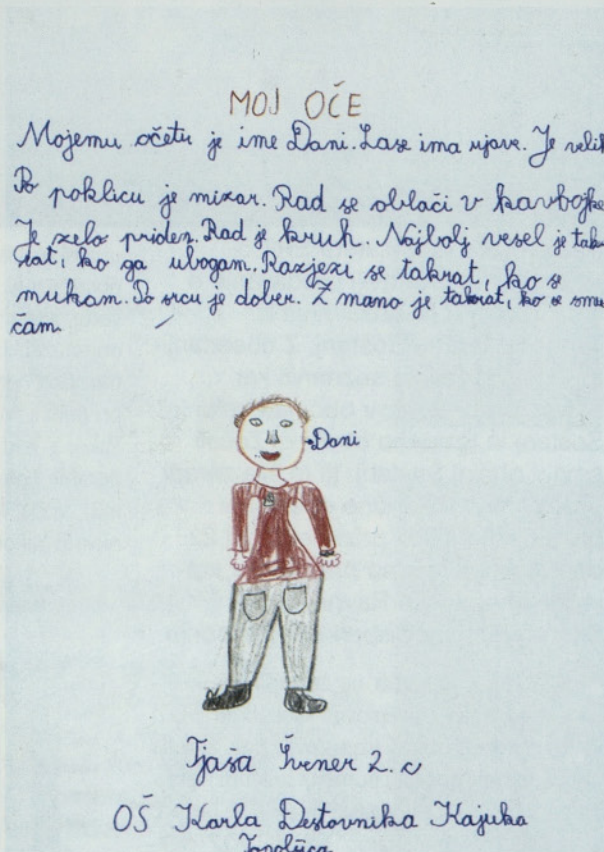 MOJ OČE
Mojemu očetu je ime Dani. Lase ima rjave. Je velik
Po poklicu je mizar. Rad se oblači v kavbojke
Je zelo priden. Rad je kruh. Najbolj vesel je tak
rat, ko ga ubogam. Razjezi se takrat, ko s
mukam. Po srcu je dober. Z mano je takrat, ko se smu
čam.
Dani
Tjaša 2. c
OŠ Karla Destovnika Kajuha